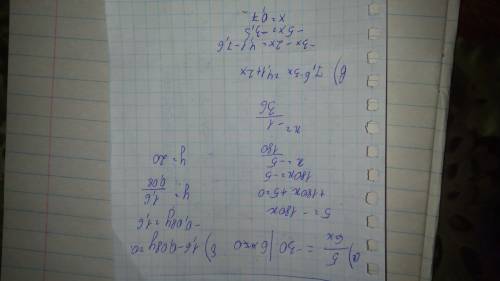 а) 5/6x = -30 | 6x≠0
5 = -180x
+180x+5=0
180x=-5
x = -5/180
x = -1/36
б) 1,6-0,08y=0
-0,08y=1,6
y = 1,6/0,08
y = 20
в) 7,6-3x=4,1+2x
-3x-2x=4,1-7,6
-5x=-3,5
x=0,7